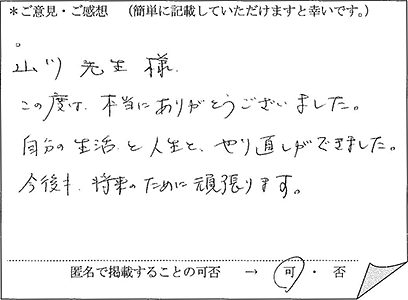 *ご意見・ご感想 (簡単に記載していただけますと幸いです。)
山川 先生 様.
この度は、本当にありがとうございました。
自分の生活と人生と、やり直しができました。
今後も、将来のために頑張ります。
匿名で掲載することの可否 → 可 ・ 否